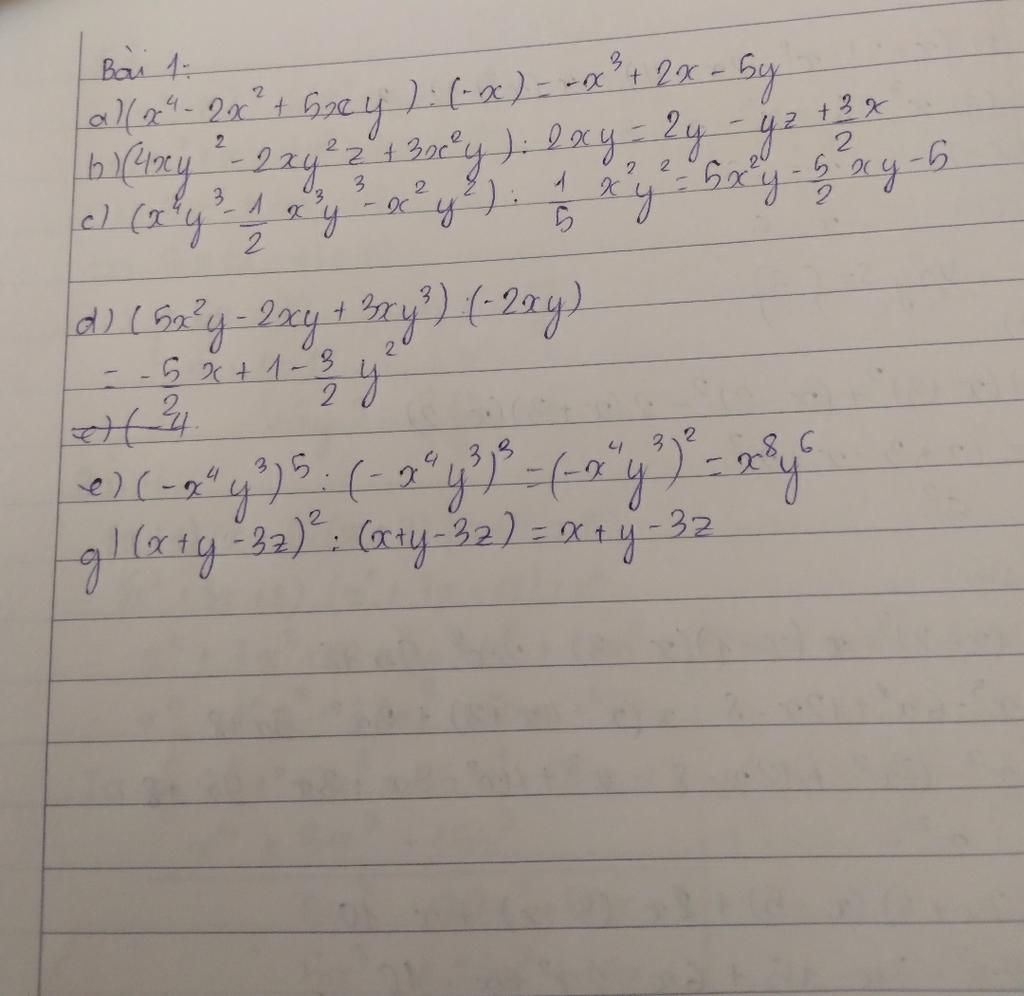 Bài 1:
a) (x⁴ - 2x² + 5xy) : (-x) = -x³ + 2x - 5y
b) (4xy² - 2xy²z + 3x²y) : 2xy = 2y - yz + 3/2 x
c) (x⁴y³ - 1/2 x³y³ - x²y²) : 1/5 x²y² = 5x²y - 5/2 xy - 5
d) (5x²y - 2xy + 3xy³) : (-2xy)
= -5/2 x + 1 - 3/2 y²
e) (-4
e) (-x⁴y³)⁵ : (-x⁴y³)³ = (-x⁴y³)² = x⁸y⁶
g) (x+y-3z)² : (x+y-3z) = x+y-3z